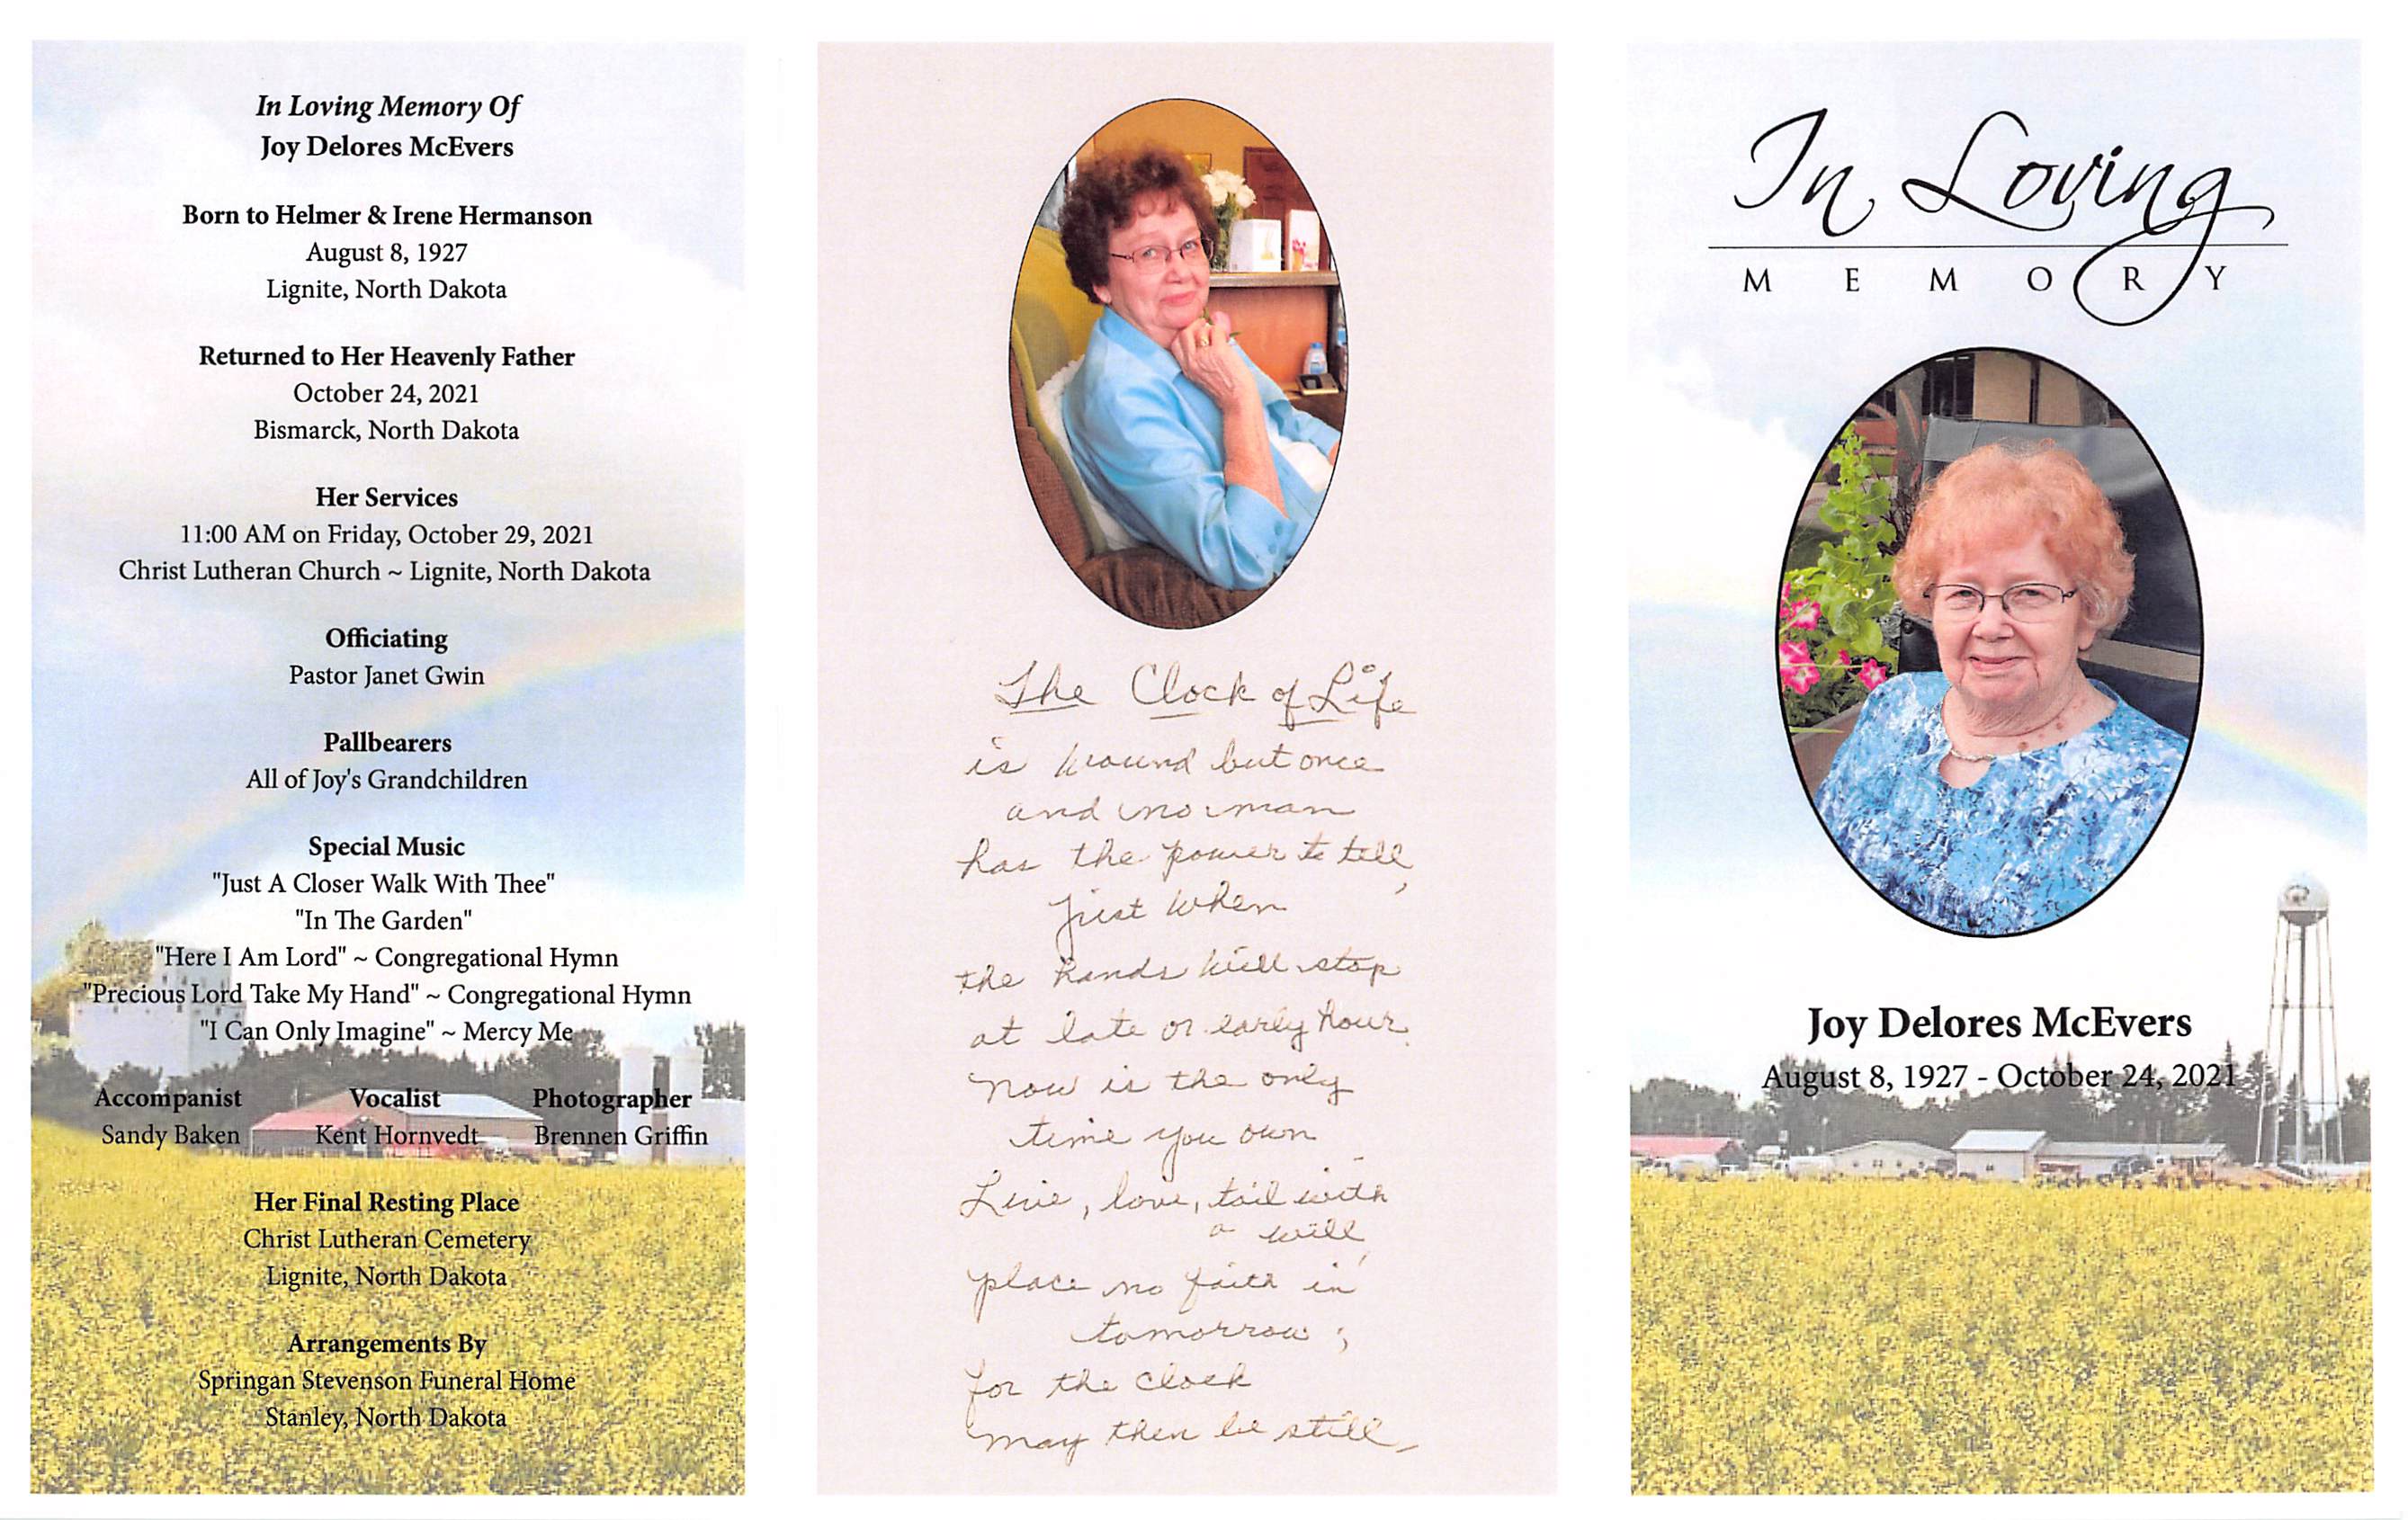 In Loving Memory Of
Joy Delores McEvers
Born to Helmer & Irene Hermanson
August 8, 1927
Lignite, North Dakota
Returned to Her Heavenly Father
October 24, 2021
Bismarck, North Dakota
Her Services
11:00 AM on Friday, October 29, 2021
Christ Lutheran Church ~ Lignite, North Dakota
Officiating
Pastor Janet Gwin
Pallbearers
All of Joy's Grandchildren
Special Music
"Just A Closer Walk With Thee"
"In The Garden"
"Here I Am Lord" ~ Congregational Hymn
"Precious Lord Take My Hand" ~ Congregational Hymn
"I Can Only Imagine" ~ Mercy Me
Accompanist Vocalist Photographer
Sandy Baken Kent Hornvedt Brennen Griffin
Her Final Resting Place
Christ Lutheran Cemetery
Lignite, North Dakota
Arrangements By
Springan Stevenson Funeral Home
Stanley, North Dakota
The Clock of Life
is wound but once
and no man
has the power to tell,
Just when
the hands will stop
at late or early hour.
Now is the only
time you own
Live, love, toil with
a will,
place no faith in
tomorrow;
for the clock
may then be still.
In Loving
MEMORY
Joy Delores McEvers
August 8, 1927 - October 24, 2021